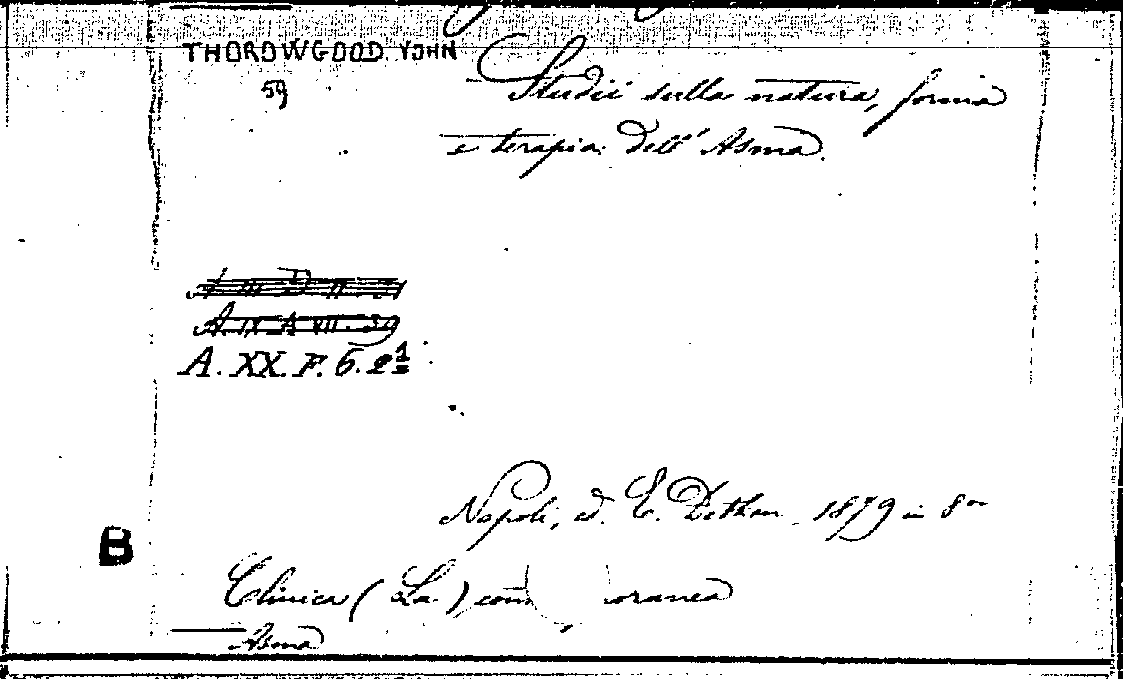 THOROWGOOD YOHN
59
Studii sulla natura, forma
e terapia dell' Asma.
A. IX A VII. 39
A. XX. F. 6. 2¹
Napoli, d. E. Dethen 1879 in 8°
B
Clinica (La) com oranea
Asma